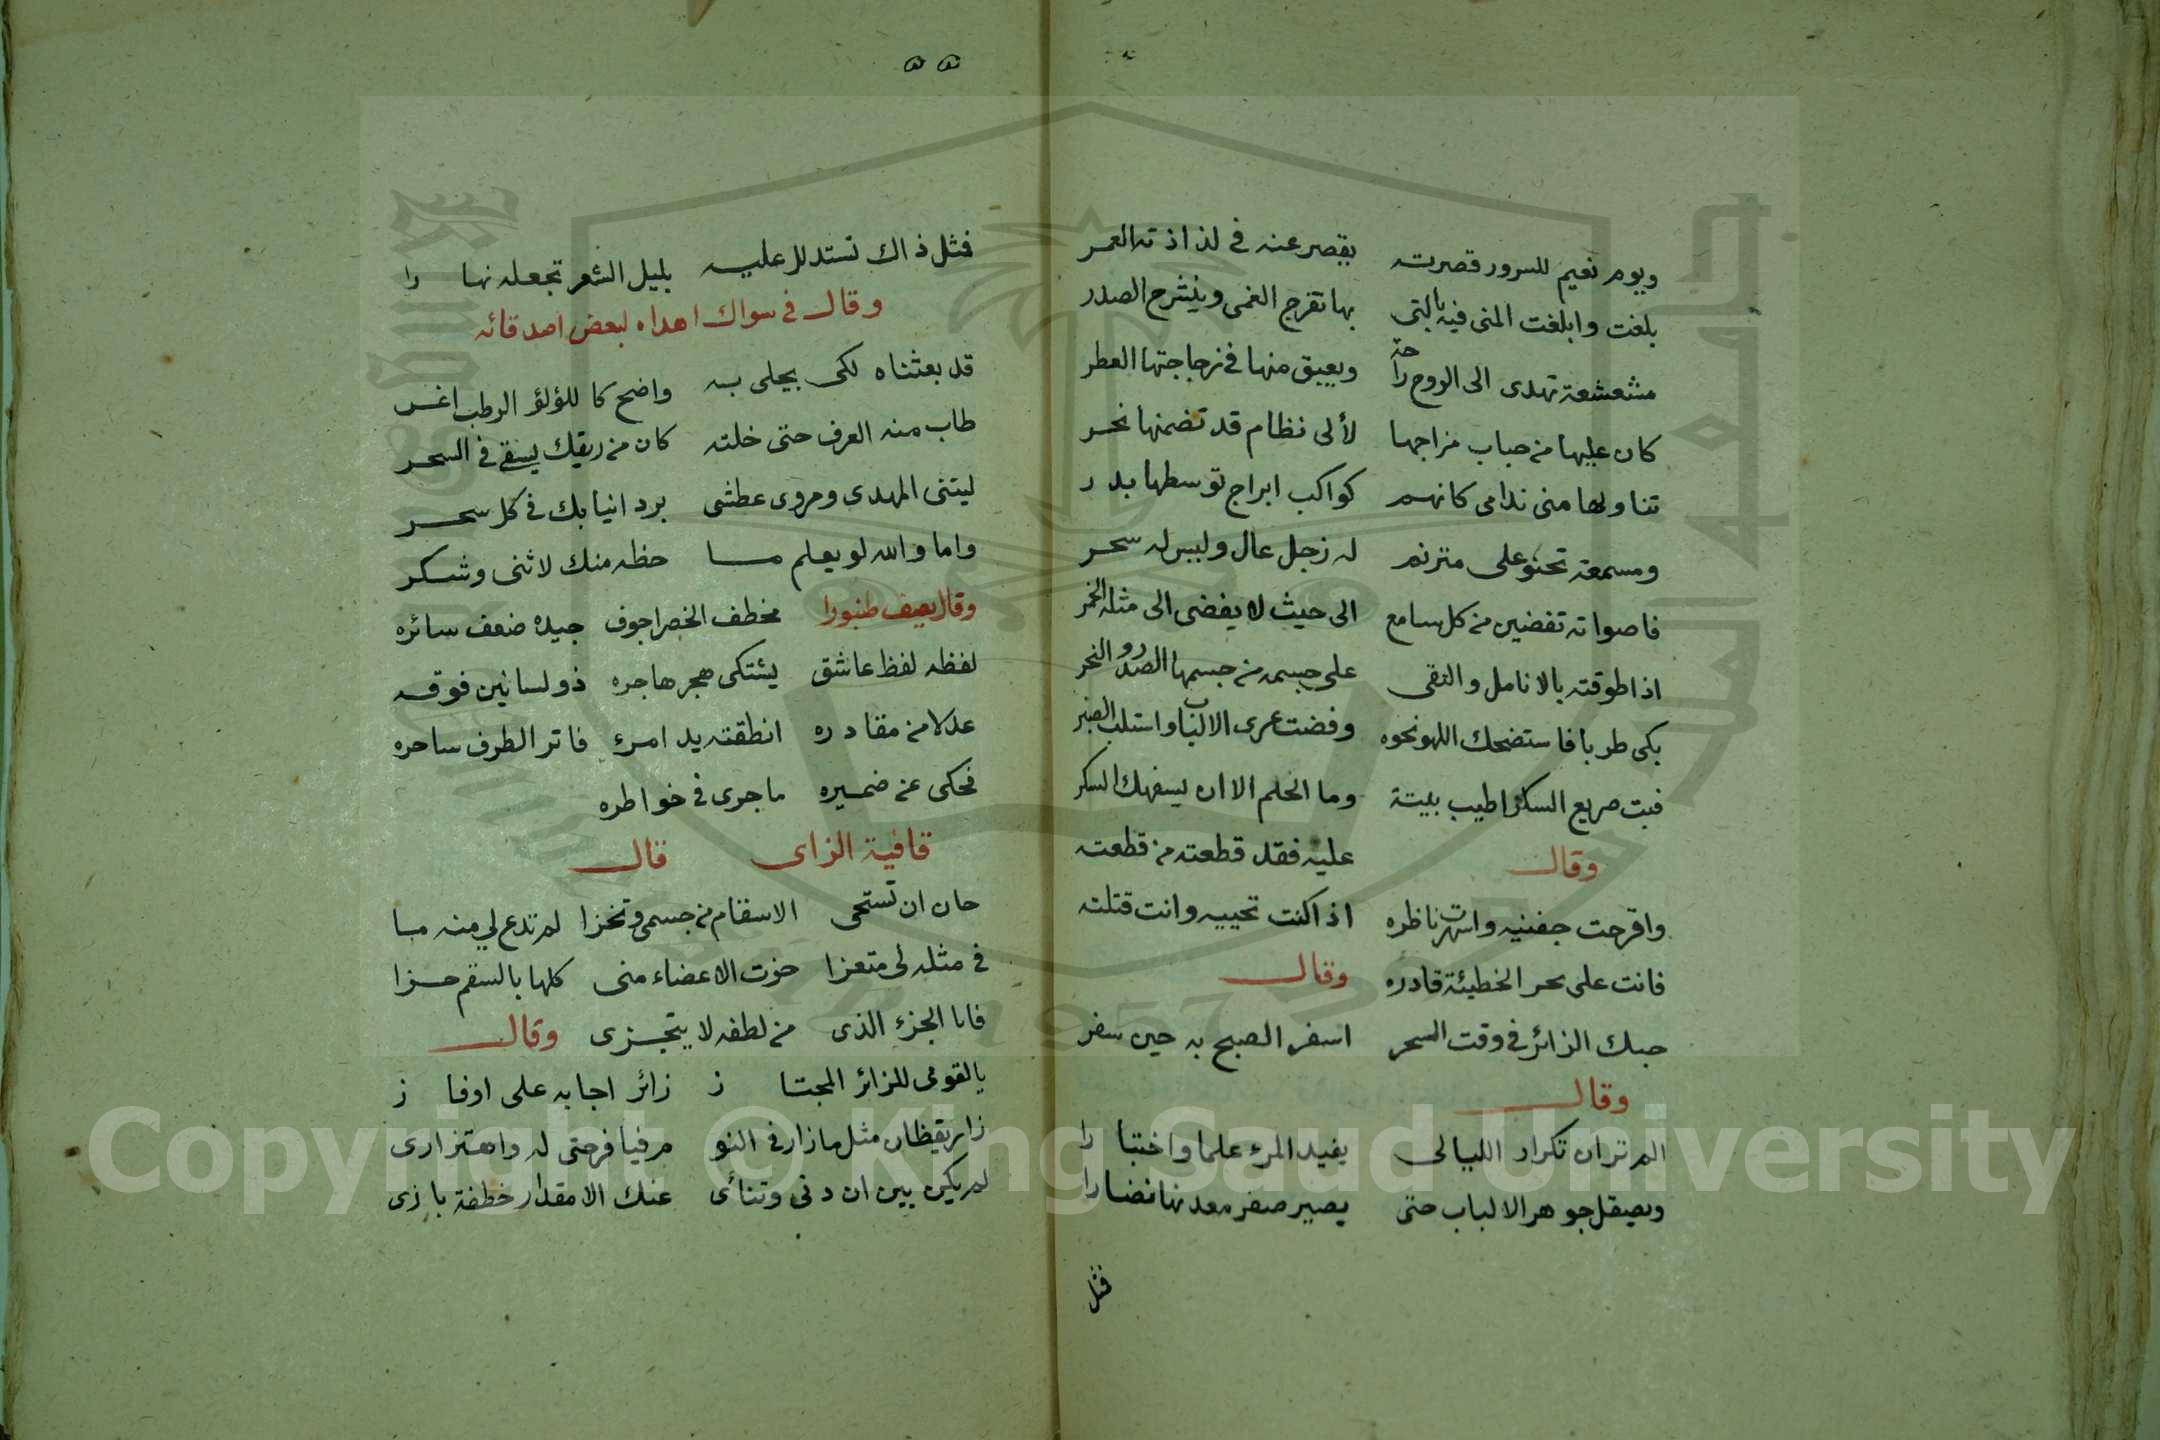 ويوم نعيم للسرور قصرته يقصر عنه في لذاذته العمر
بلغت وابلغت المنى فيه بالتي بها تفرج الغمى وينشرح الصدر
مشعشعة تهدى الى الروح راحة ويعبق منها في زجاجتها العطر
كان عليها من حباب مزاجها لألى نظام قد تضمنها نحر
تناولها منى ندامى كانهم كواكب ابراج توسطها بدر
ومسمعة تحنو على مترنم له زجل عال وليس له سحر
فاصواته تفضين من كل سامع الى حيث لا يفضى الى مثله الخمر
اذا طوقته بالانامل والتقى على جسمه من جسمها الصدر والنحر
بكى طربا فاستضحك اللهو نحوه وفضت عرى الالباب واستلب الصبر
فبت صريع السكر اطيب بيتة وما الحلم الا ان يسفهك السكر
وقال عليه فقد قطعته من قطعته
واقرحت جفنيه واسهرت ناظره اذا كنت تحييه وانت قتلته
فانت على بحر الخطيئة قادره وقال
حبك الزائر في وقت السحر اسفر الصبح به حين سفر
وقال
الم تر ان تكرار الليالى يفيد المرء علما واختبا را
ويصقل جوهر الالباب حتى يصير صفر معدنها نضارا
فمثل
٥٥
فمثل ذاك تستدلل عليه بليل الشعر تجعله نها را
وقال في سواك اهداه لبعض اصدقائه
قد بعثناه لكى يجلى به واضح كاللؤلؤ الرطب اغر
طاب منه العرف حتى خلته كان من ريقك يسقى في السحر
ليتنى المهدى ومروى عطشى برد انيابك في كل سحر
واما والله لو يعلم ما حظه منك لاثنى وشكر
وقال يصف طنبورا مخطف الخصر اجوف جيده ضعف سائره
لفظه لفظ عاشق يشتكى هجر هاجره ذو لسانين فوقه
عدلا من مقادره انطقته يد امرء فاتر الطرف ساحره
فحكى عن ضميره ما جرى في خواطره
قافية الزاى قال
حان ان تستحى الاسقام من جسمى وتخزا لم تدع لي منه ما
في مثله لى متعزا حزت الاعضاء منى كلها بالسقم حزا
فانا الجزء الذى من لطفه لا يتجزى وقال
يا لقومى للزائر المجتا ز زائر اجا به على اوفا ز
زار يقظان مثل ما زار في النو م فيا فرحتى له واهتزازى
لم يكن بين ان دنى وتنائى عنك الا مقدار خطفة بازى
Copyright © King Saud University
1957